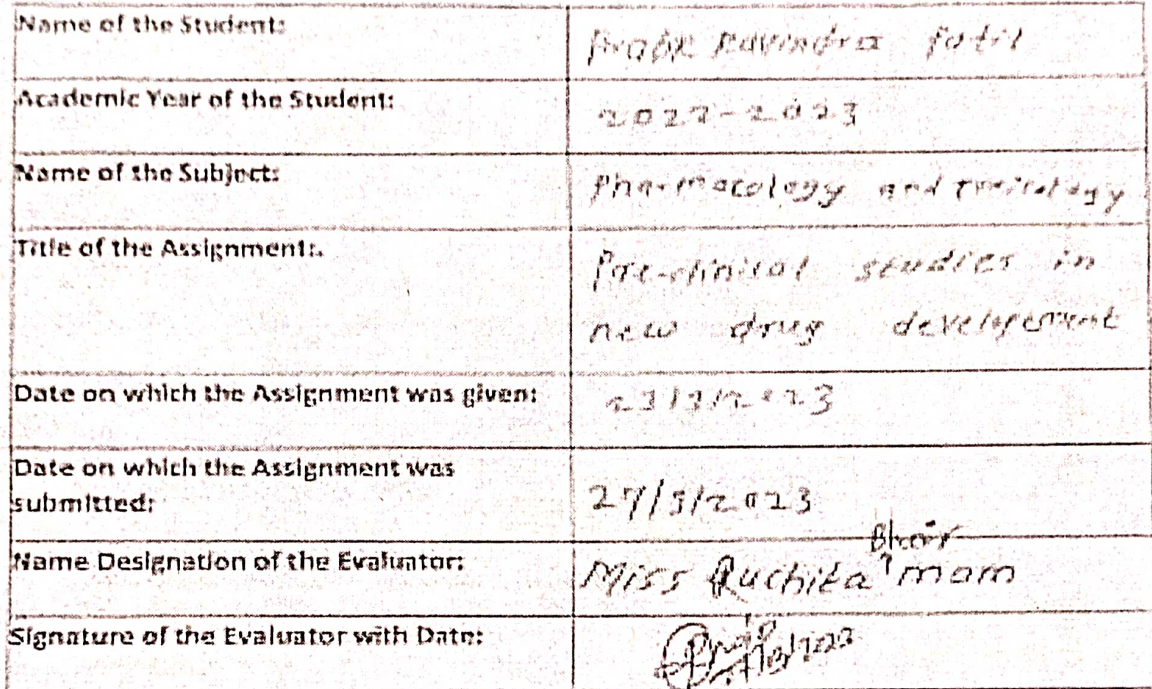 Name of the Student: Ravindra Patil
Academic Year of the Student: 2022-2023
Name of the Subject: Pharmacology and Toxicology
Title of the Assignment:. Pre-clinical studies in
new drug developement
Date on which the Assignment was given: 23/3/2023
Date on which the Assignment was
submitted: 27/3/2023
Name Designation of the Evaluator: Miss Ruchita Bhoir mam
Signature of the Evaluator with Date: